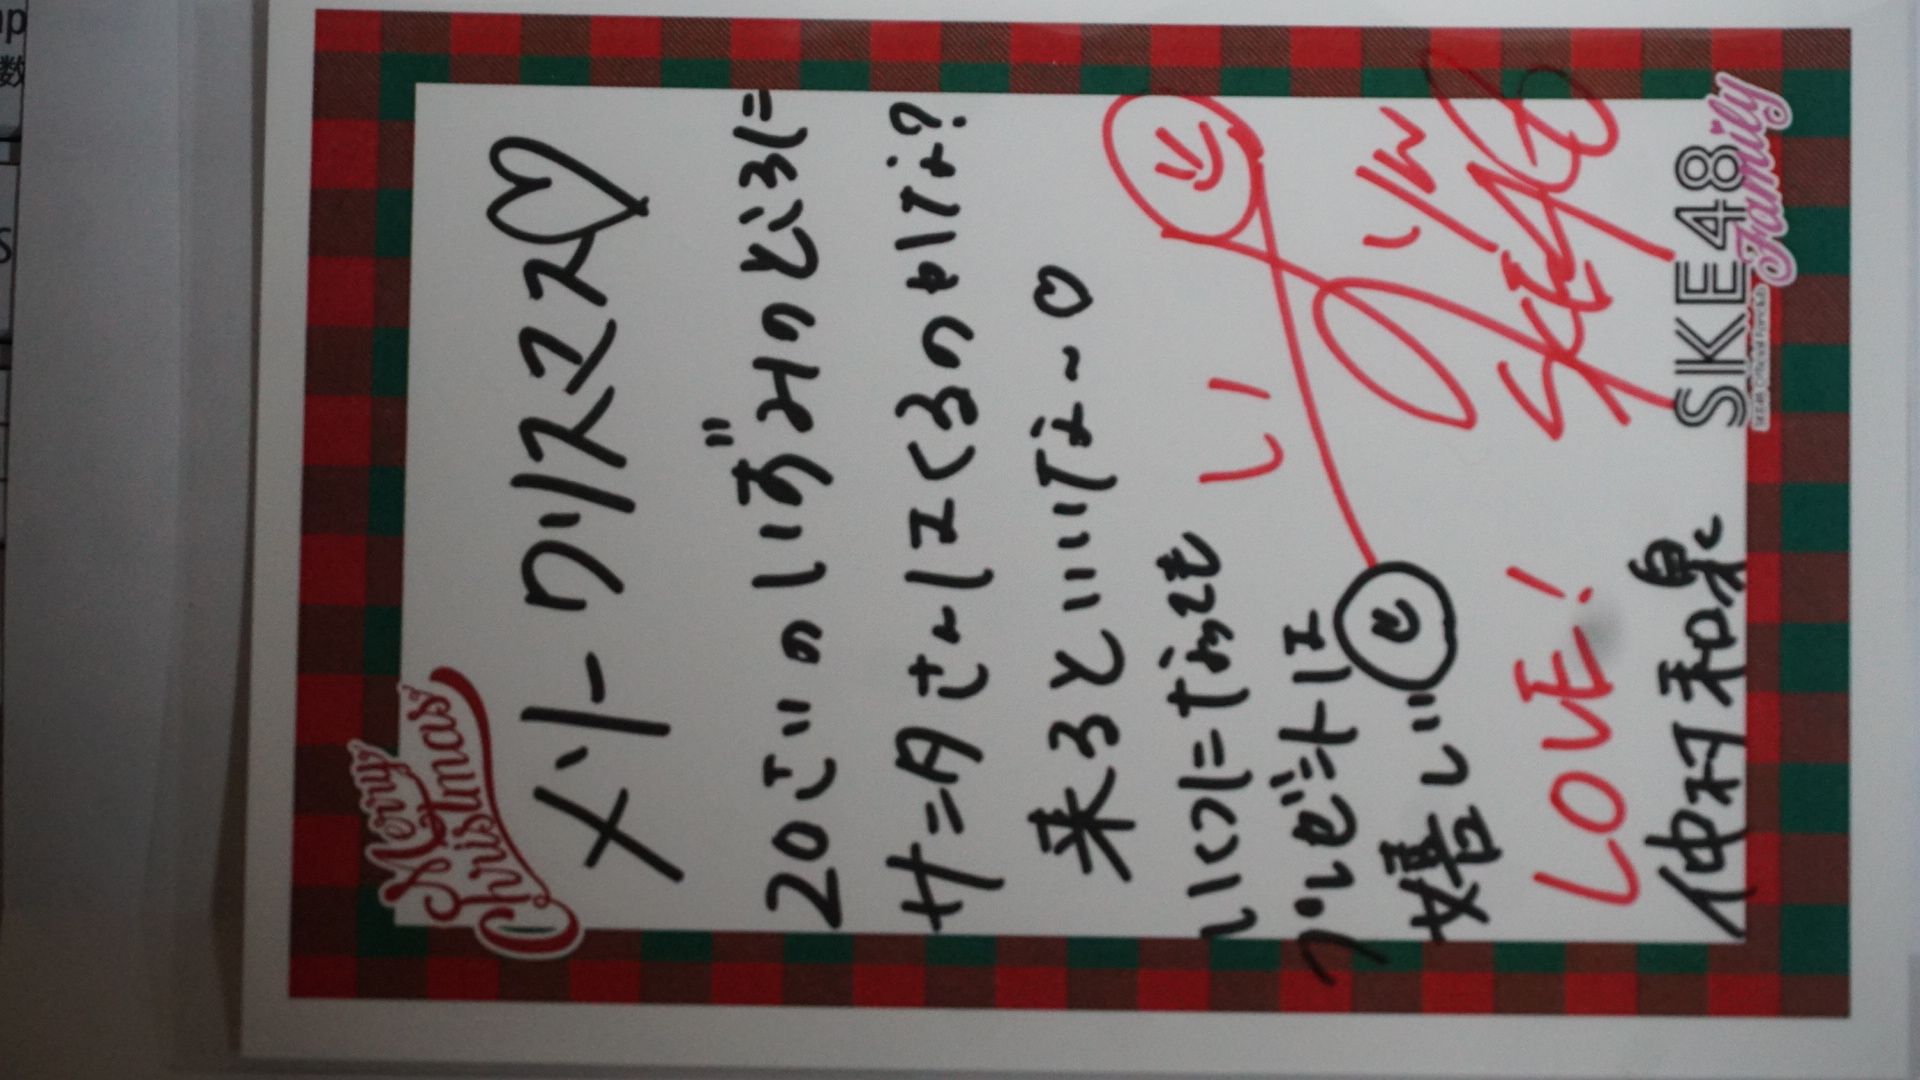 Merry
Christmas
メリークリスマス♡
20さいのいずみのところに
サンタさ〜んはくるのかな?
来るといいな〜♡
いくつになっても
プレゼントは
嬉しい
いい
LOVE!
仲村和泉
SKE48
Family
SKE48 Official Fanclub
数